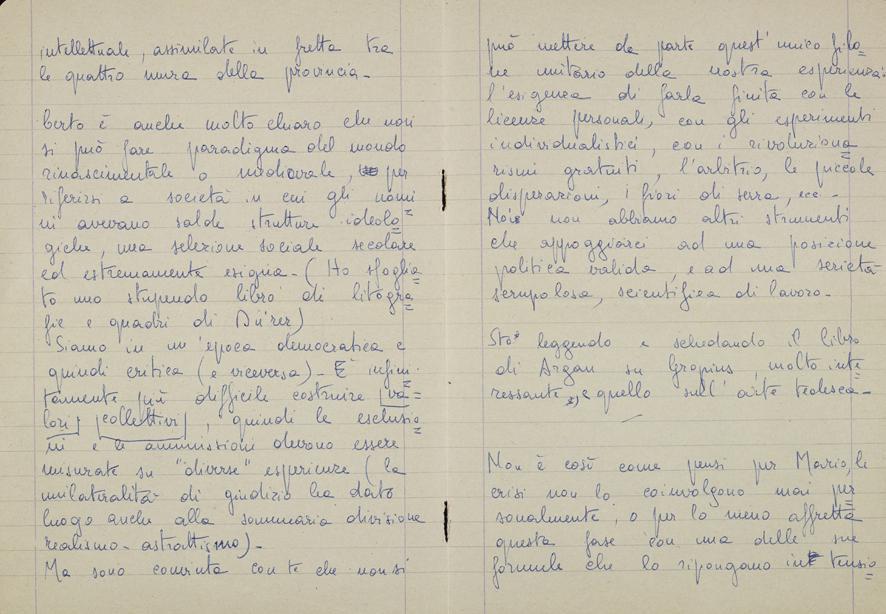 intellettuale, assimilate in fretta tra
le quattro mura della provincia.-
Certo è anche molto chiaro che non
si può fare paradigma del mondo
rinascimentale o medioevale, per
riferirsi a società in cui gli uomi
ni avevano salde strutture ideolo=
giche, una selezione sociale secolare
ed estremamente esigua.- (Ho sfoglia=
to uno stupendo libro di litogra=
fie e quadri di Dürer)
Siamo in un'epoca democratica e
quindi critica (e viceversa).- È infini=
tamente più difficile costruire va=
lori collettivi, quindi le esclusio=
ni e le ammissioni devono essere
misurate su "diverse" esperienze (la
unilateralità di giudizio ha dato
luogo anche alla sommaria divisione
realismo-astrattismo).-
Ma sono convinta con te che non si
può mettere da parte quest'unico filo=
ne unitario della nostra esperienza:
l'esigenza di farla finita con le
licenze personali, con gli esperimenti
individualistici, con i rivoluziona=
rismi gratuiti, l'arbitrio, le piccole
disperazioni, i fiori di serra, ecc.-
Noi non abbiamo altri strumenti
che appoggiarci ad una posizione
politica valida, e ad una serietà
scrupolosa, scientifica di lavoro.-
Sto leggendo e schedando il libro
di Argan su Gropius, molto inte=
ressante, e quello sull'arte tedesca.-
Non è così come pensi per Mario, le
crisi non lo coinvolgono mai per=
sonalmente, o per lo meno affretta
questa fase con una delle sue
formule che lo ripongano in tensio=